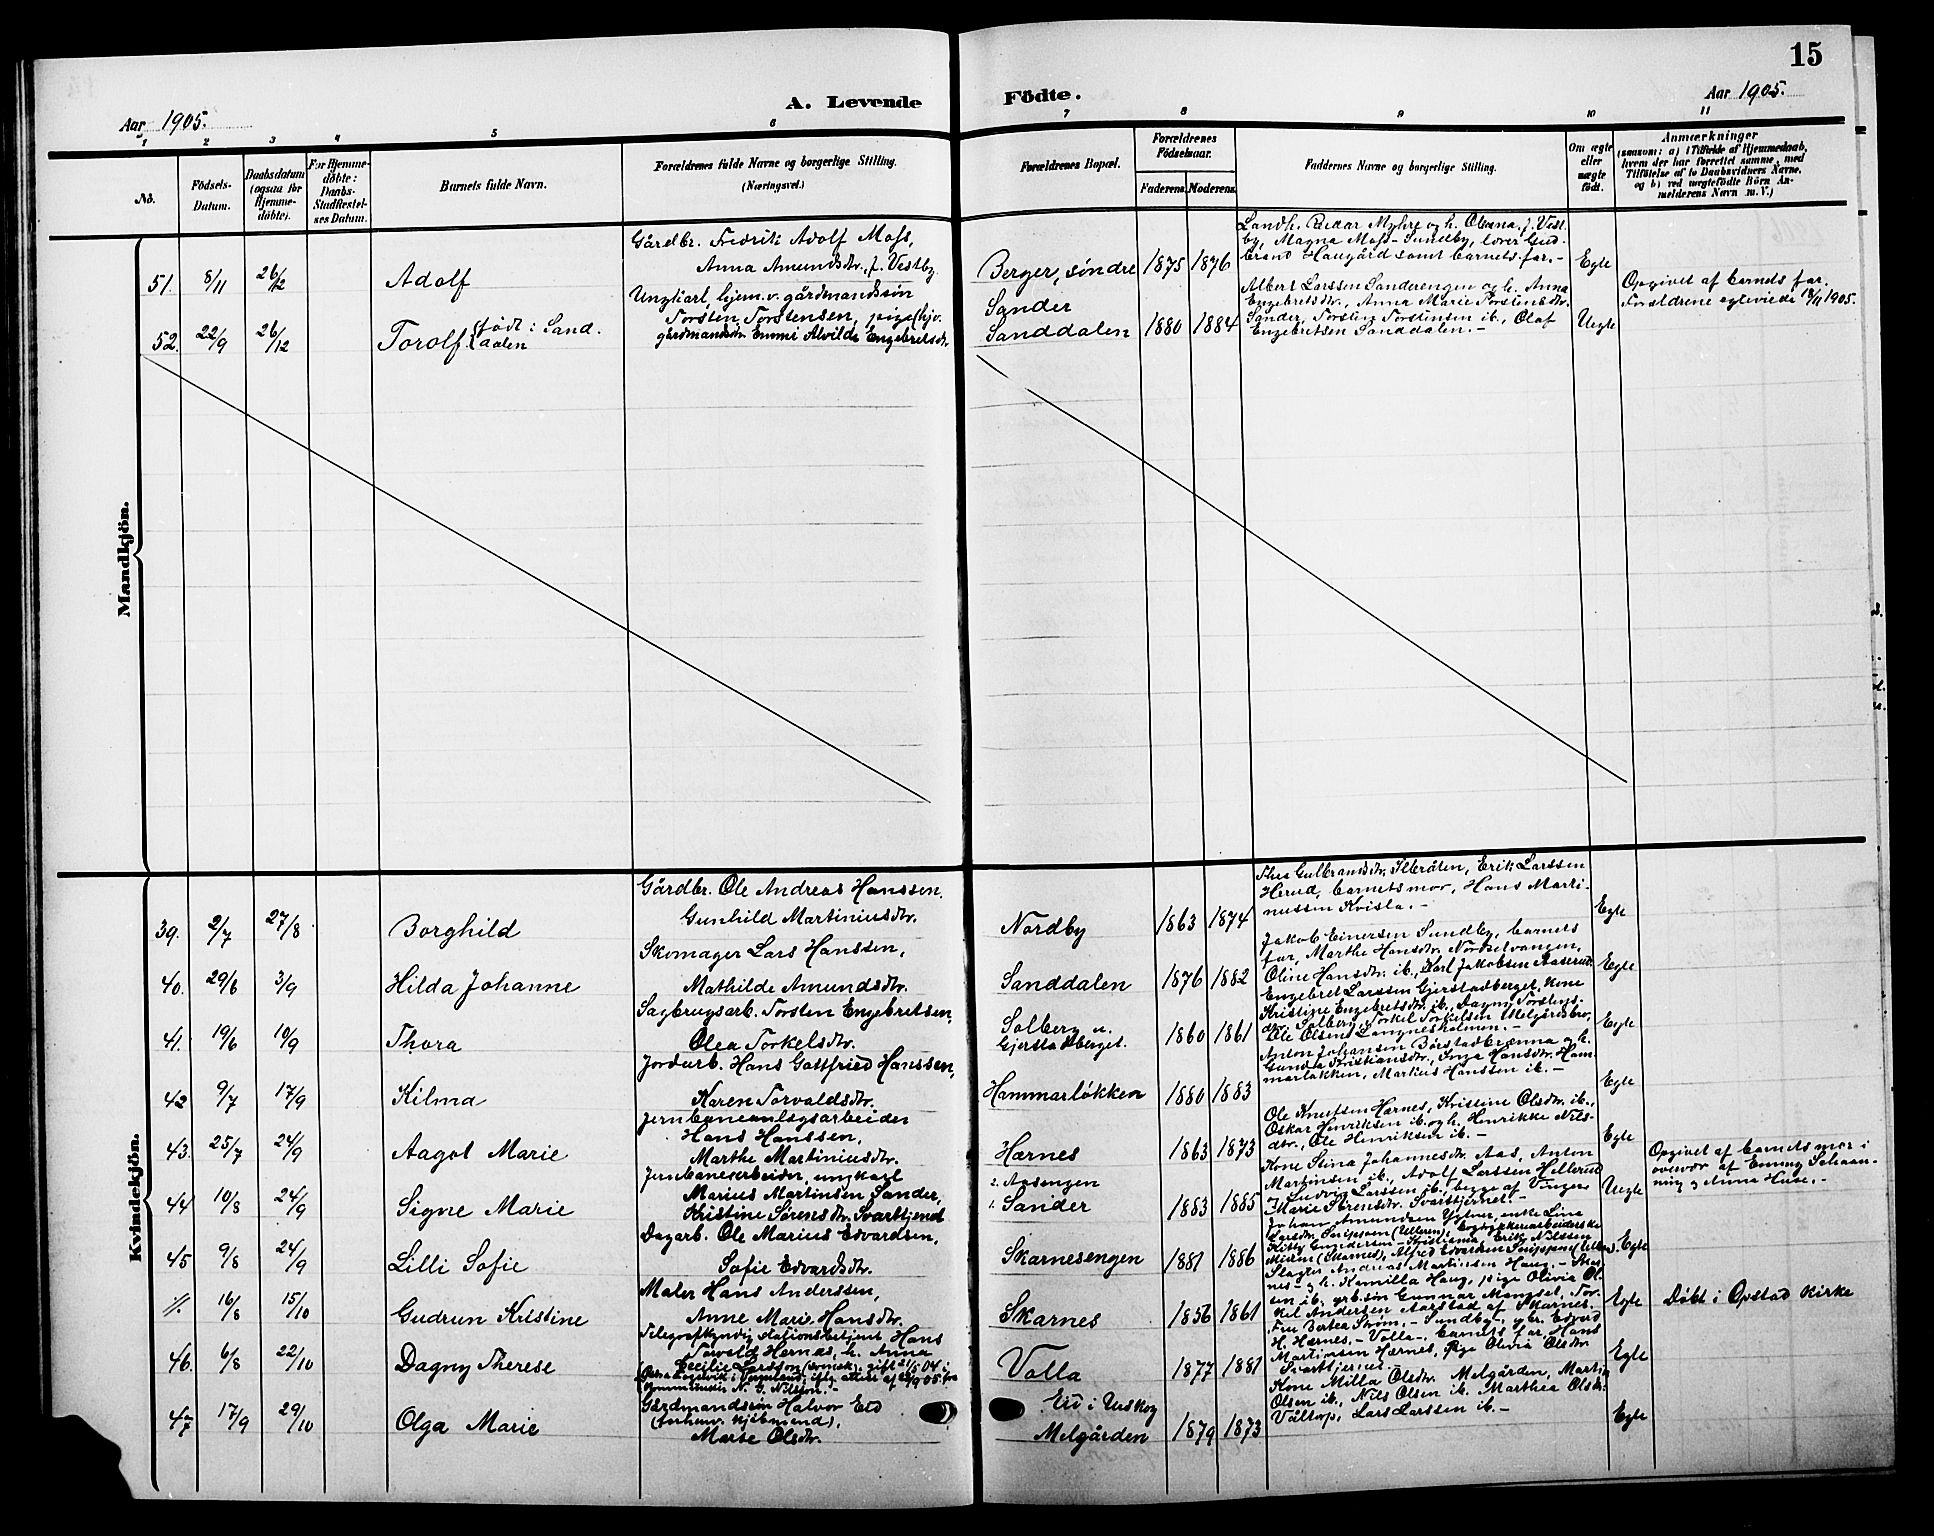 15
Aar 1905.
A. Levende
Födte.
Aar 1905.
1
2
3
4
5
6
7
8
9
10
11
No.
Födsels-
Datum.
Daabsdatum
(ogsaa for
Hjemme-
döbte).
For Hjemme-
döbte:
Daabs-
Stadfæstel-
ses Datum.
Barnets fulde Navn.
Forældrenes fulde Navne og borgerlige Stilling.
(Næringsvei.)
Forældrenes Bopæl.
Forældrenes
Födselsaar.
Faderens.
Moderens.
Faddernes Navne og borgerlige Stilling.
Om ægte
eller
uægte
födt.
Anmærkninger
(saasom: a) i Tilfælde af Hjemmedaab,
hvem der har forrettet samme, med
Tilföielse af to Daabsvidners Navne,
og b) ved uægtefödte Börn An-
melderens Navn m. V.)
Mandkjön.
51.
8/11
26/12
Adolf
Gårdbr. Fredrik Adolf Moss,
Anna Amundsdtr. f. Vestby
Berger, søndre
1875
1876
Landh. Reidar Myhre og h. Olevina f. Vest-
by, Magna Moss - Sundby, lærer Gud-
brand Haugård samt barnets far. -
Egte
52.
22/9
26/12
Torolf
født i Sand-
dalen
Ungkarl, hjem.v. gårdmandssøn
Torsten Torstensen, pige (hjv.
gårdmandsdtr. Emmi Alvilde Engebretsdtr.
Sander
Sanddalen
1880
1884
Albert Larssen Sanderengen og h. Anna
Engebretsdtr., Anna Marie Torstensdtr.
Sander, Torsten Torstensen ib., Olaf
Engebretsen Sanddalen. -
Uegte
Opgivet af barnets far.
Forældrene egteviede 18/11 1905.
Kvindekjön.
39.
2/7
27/8
Borghild
Gårdbr. Ole Andreas Hanssen,
Gunhild Martiniusdtr.
Nordby
1863
1874
Thea Gulbrandsdtr. Ilbråten, Erik Larssen
Herud, barnets mor, Hans Marti-
nussen Kvisla. -
Egte
40.
29/6
3/9
Hilda Johanne
Skomager Lars Hanssen,
Mathilde Amundsdtr.
Sanddalen
1876
1882
Jakob Einersen Sundby, barnets
far, Marthe Hansdtr. Nordsetvangen,
Oline Hansdtr. ib., Karl Jakobsen Aaserud.
Egte
41.
19/6
10/9
Thora
Sagbrugsarb. Torsten Engebretsen,
Olea Torkelsdtr.
Solberg u.
Gjerstadberget.
1860
1861
Engebret Larssen Gjerstadberget, kone
Kristine Engebretsdtr. ib., Dagny Torstens-
dtr. Solberg, Torkel Torkelsen Melgårdsbro,
Ole Olsen Langnesholmen. -
Egte
42
9/7
17/9
Kilma
Jordarb. Hans Gottfried Hanssen,
Karen Torvaldsdtr.
Hammarløkken
1880
1883
Anton Johansen Børstadbrænna og h.
Gunda Kristiansdtr., Inga Hansdtr. Ham-
marløkken, Markus Hanssen ib. -
Egte
43.
25/7
24/9
Aagot Marie
Jernbaneanlegsarbeider
Hans Hanssen,
Marthe Martiniusdtr.
Hærnes
1863
1873
Ole Knutsen Hærnes, Kristine Olsdtr. ib.,
Oskar Henriksen ib. og h. Henrikke Nils-
dtr., Ole Henriksen ib. -
Egte
44
10/8
24/9
Signe Marie
Jernbanearbeider, ungkarl
Marius Martinsen Sander,
Kristine Sørensdtr. Svarttjend
2. Aasengen
1. Sander
1883
1885
Kone Stina Johannesdtr. Aas, Anton
Martinsen ib., Adolf Larssen Hellerud
og Ludvig Larssen ib., begge af Vinger
Marie Sørensdtr. Svarttjernet. -
Uegte
Opgivet af barnets mor i
overvær af Emmy Schaan-
ning og Anna Huse. -
45
9/8
24/9
Lilli Sofie
Dagarb. Ole Marius Edvardsen,
Sofie Edvardsdtr.
Skarnesengen
1881
1886
Johan Amundsen Ygbner, enke Lina
Larsdtr. Snippen (Ullern),
Kitty Gundersen - Kristiania, Erik Nilssen
Alfred Edvardsen Snippen (Ullern).
Egte
//.
16/8
15/10
Gudrun Kristine
Maler Hans Anderssen,
Anne Marie Hansdtr.
Skarnes
1856
1861
Slagter Andreas Martinsen Haug, - Skar-
nes - og h. Kamilla Haug, pige Olivia Ol-
sen ib., grb.søn Gunnar Mangset, Tor-
kil Andersen Aarstad af Skarnes.
Egte
Døbt i Opstad kirke
46.
6/8
22/10
Dagny Therese
Telegrafkyndig stationsbetjent Hans
Torvald Hernæs, h. Anna
Cecilie Larsson (svensk), gift 21/5 04 i
Volla
1877
1881
Fru Bertea Strøm, - Sundby -, gbr. Edvard
H. Hærnes, - Volla -, barnets far, Hans
Martinsen Hærnes, Pige Olivia Olsdtr.
Svarttjernet.
Egte
47
17/9
29/10
Olga Marie
Gårdmandssøn Halvor Eid
(forhenv. kjøbmend),
Marte Olsdtr.
Eid i Urskog
Melgården
1879
1873
Kone Milla Olsdtr. Melgården, Martin
Olsen ib., Nils Olsen ib., Marthea Olsdtr.
Våltorp, Lars Larssen ib. -
Egte